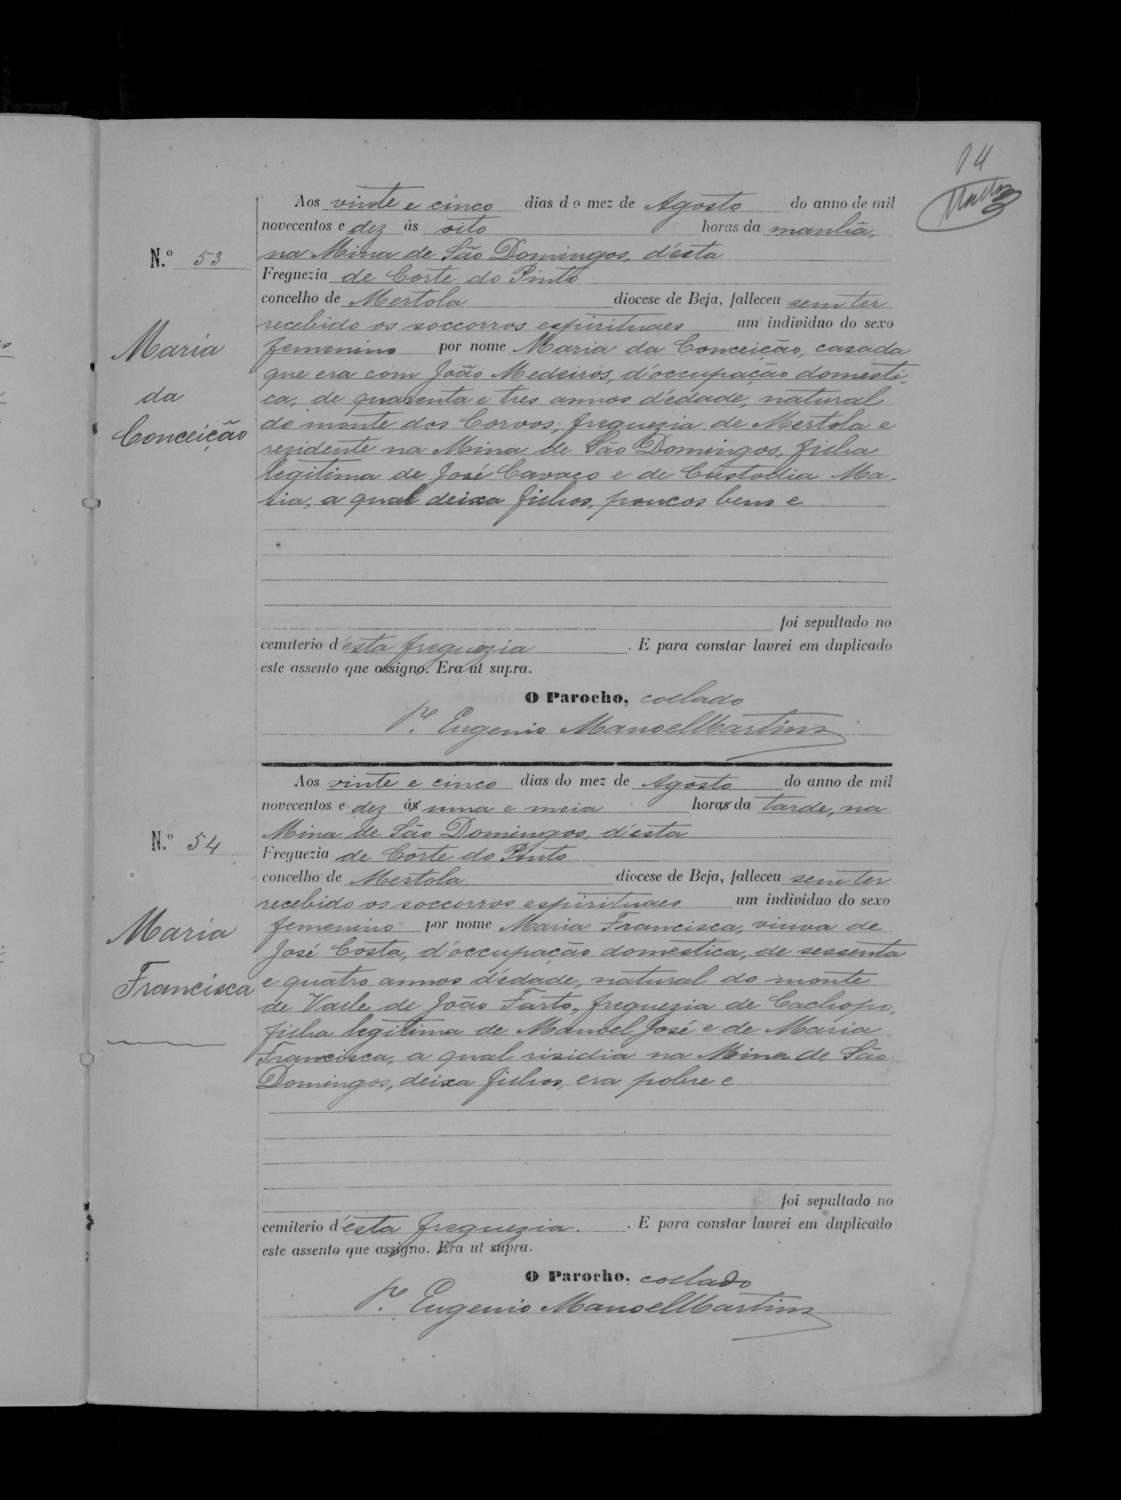 14
Martins
Aos vinte e cinco dias do mez de Agosto do anno de mil
novecentos e dez ás oito horas da manhã,
N.º 53
na Mina de São Domingos, d'esta
Freguezia de Corte do Pinto
concelho de Mertola diocese de Beja, falleceu sem ter
recebido os soccorros espirituaes um individuo do sexo
Maria
da
Conceição
femenino por nome Maria da Conceição, casada
que era com João Medeiros, d'occupação domesti-
ca, de quarenta e tres annos d'edade, natural
do monte dos Corvos, freguezia de Mertola e
rezidente na Mina de São Domingos, filha
legitima de José Cavaco e de Custodia Ma-
ria, a qual deixa filhos, poucos bens e
foi sepultado no
cemiterio d'esta freguezia. E para constar lavrei em duplicado
este assento que assigno. Era ut supra.
O Parocho, collado
P.e Eugenio Manoel Martins
Aos vinte e cinco dias do mez de Agosto do anno de mil
novecentos e dez ás uma e meia horas da tarde, na
N.º 54
Mina de São Domingos, d'esta
Freguezia de Corte do Pinto
concelho de Mertola diocese de Beja, falleceu sem ter
recebido os soccorros espirituaes um individuo do sexo
Maria
Francisca
femenino por nome Maria Francisca, viuva de
José Costa, d'occupação domestica, de sessenta
e quatro annos d'edade, natural do monte
de Valle de João Farto, freguezia de Cachopo,
filha legitima de Manoel José e de Maria
Francisca, a qual risidia na Mina de São
Domingos, deixa filhos, era pobre e
foi sepultado no
cemiterio d'esta freguezia. E para constar lavrei em duplicado
este assento que assigno. Era ut supra.
O Parocho, collado
P.e Eugenio Manoel Martins